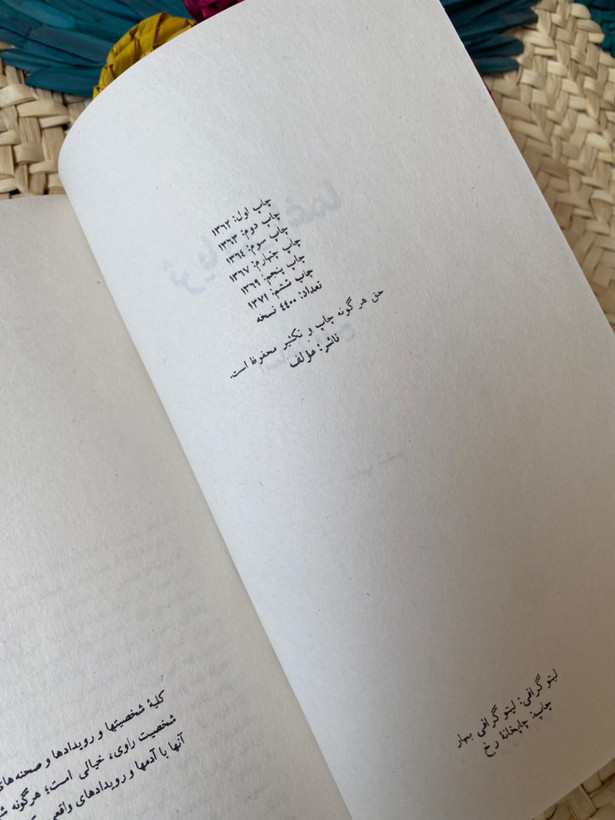 چاپ اول: ۱۳۶۲
چاپ دوم: ۱۳۶۳
چاپ سوم: ۱۳۶۴
چاپ چهارم: ۱۳۶۷
چاپ پنجم: ۱۳۶۹
چاپ ششم: ۱۳۷۱
تعداد: ۴۴۰۰ نسخه
حق هر گونه چاپ و تکثیر محفوظ است.
ناشر: مؤلف
لیتوگرافی: لیتوگرافی بهار
چاپ: چاپخانهٔ رخ
کلیهٔ شخصیتها و رویدادها و صحنه‌های
شخصیت راوی، خیالی است؛ هرگونه
آنها با آدمها و رویدادهای واقعی